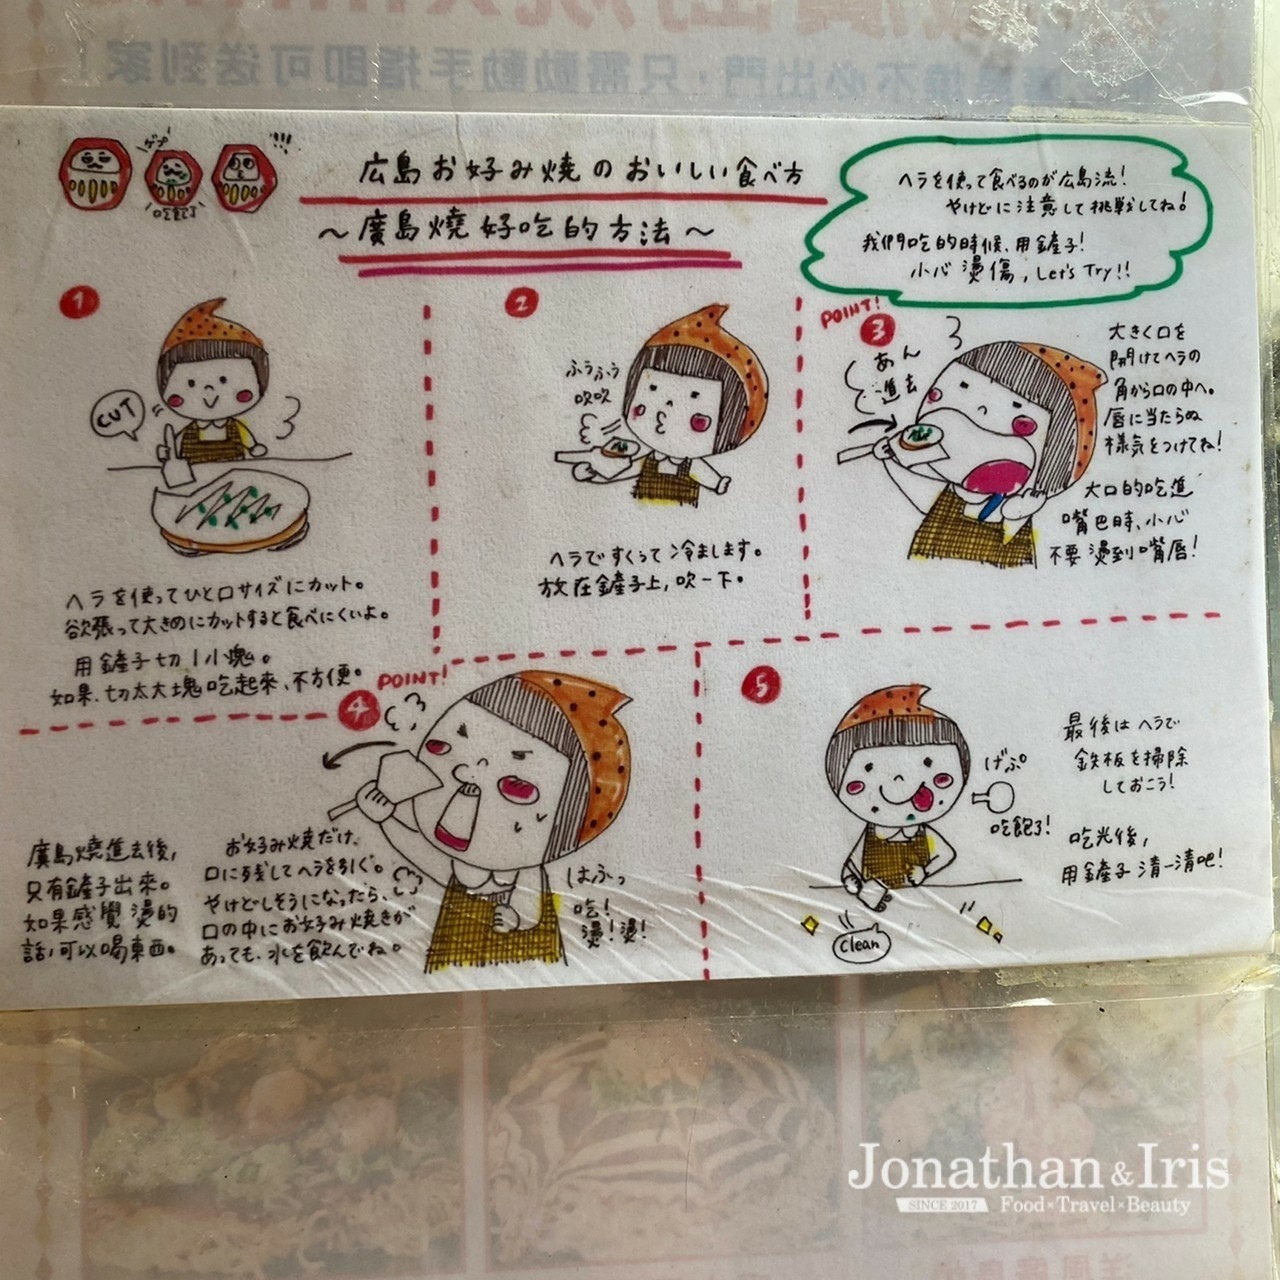 廣島燒不必出門，只需動動手指即可送到家！
ばふ
吃飽了
広島お好み焼のおいしい食べ方
～廣島燒好吃的方法～
ヘラを使って食べるのが広島流！
やけどに注意して挑戦してね！
我們吃的時候、用鏟子！
小心燙傷，Let's Try!!
1
CUT
ヘラを使ってひと口サイズにカット。
欲張って大きめにカットすると食べにくいよ。
用鏟子切1小塊。
如果、切太大塊吃起來、不方便。
2
ふうふう
吹吹
ヘラですくって冷まします。
放在鏟子上，吹一下。
POINT!
3
あん
進去
大きく口を
開けてヘラの
角から口の中へ。
唇に当たらぬ
様気をつけてね！
大口的吃進
嘴巴時、小心
不要燙到嘴唇！
POINT!
4
廣島燒進去後，
只有鏟子出來。
如果感覺燙的
話，可以喝東西。
お好み焼だけ、
口に残してヘラを引く。
やけどしそうになったら、
口の中にお好み焼きが
あっても、水を飲んでね。
はふっ
吃！
燙！燙！
5
げぷ
吃飽了！
clean
最後はヘラで
鉄板を掃除
しておこう！
吃光後，
用鏟子清一清吧！
Jonathan & Iris
SINCE 2017 Food×Travel×Beauty